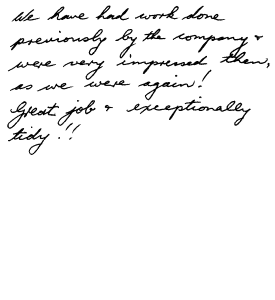 We have had work done
previously by the company &
were very impressed then,
as we were again!
Great job & exceptionally
tidy!!